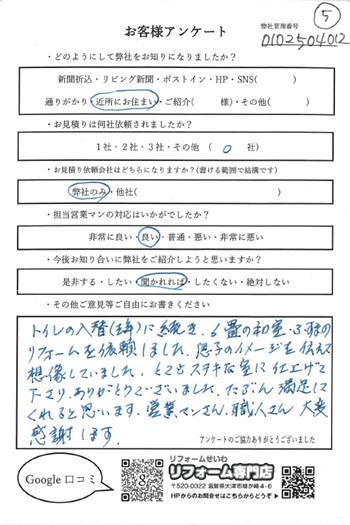 5
お客様アンケート
弊社管理番号
0102504012
・どのようにして弊社をお知りになりましたか？
新聞折込・リビング新聞・ポストイン・HP・SNS(　　　)
通りがかり・近所にお住まい・ご紹介(　　　様)・その他(　　　)
・お見積りは何社依頼されましたか？
1社・2社・3社・その他 (　0　社)
・お見積り依頼会社はどちらになりますか？(書ける範囲で結構です)
弊社のみ・他社(　　　)
・担当営業マンの対応はいかがでしたか？
非常に良い・良い・普通・悪い・非常に悪い
・今後お知り合いに弊社をご紹介しようと思いますか？
是非する・したい・聞かれれば・したくない・絶対しない
・その他ご意見等ご自由にお書きください
トイレの入替に続き、6畳の和室
リフォームを依頼しました。息子のイメージを伝えて
想像していました。とてもステキな室に仕上げて
下さり、ありがとうございました。たぶん満足して
くれると思います。営業マンさん、職人さん 大変
感謝します。
アンケートのご協力ありがとうございました
Google 口コミ
リフォームせいわ
リフォーム専門店
〒520-0322 滋賀県大津市緑が崎4-6
HPからのお問合せはこちらからどうぞ